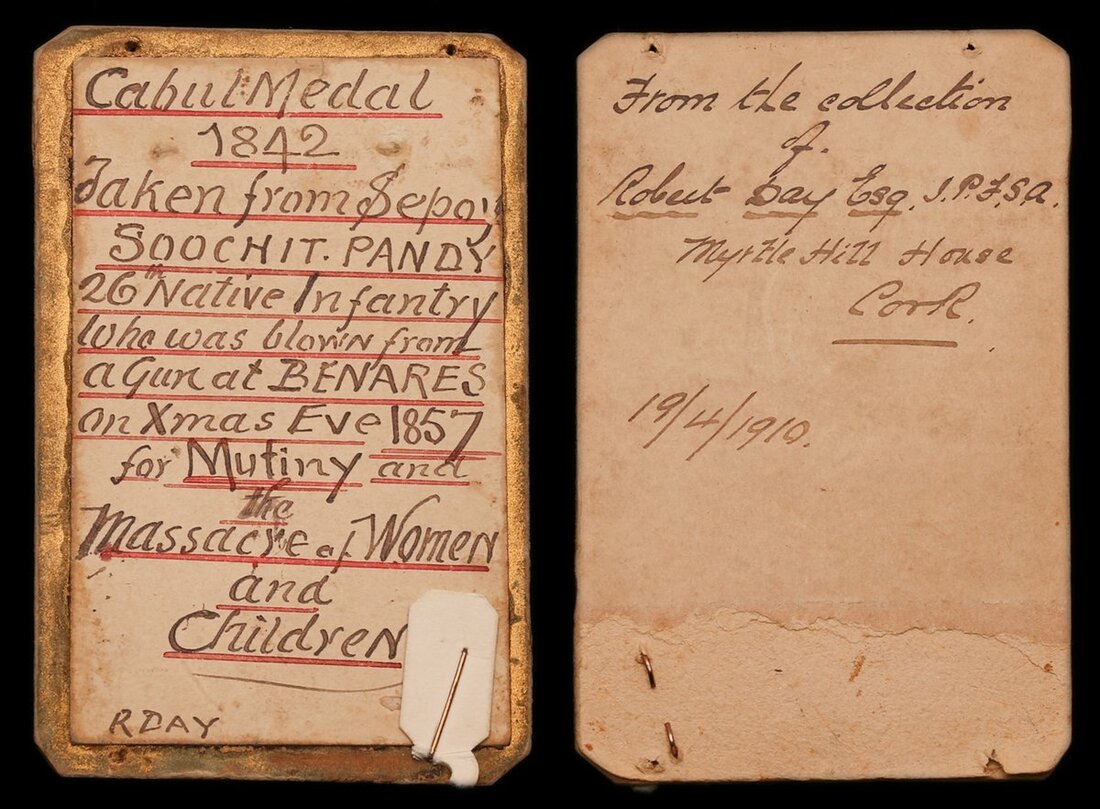 Cabul Medal
1842
Taken from Sepoy
SOOCHIT. PANDY
26th Native Infantry
who was blown from
a Gun at BENARES
on Xmas Eve 1857
for Mutiny and
the
Massacre of Women
and
Children
R DAY
From the collection
of.
Robert Day Esq. J.P.F.S.A.
Myrtle Hill House
Cork.
19/4/1910.